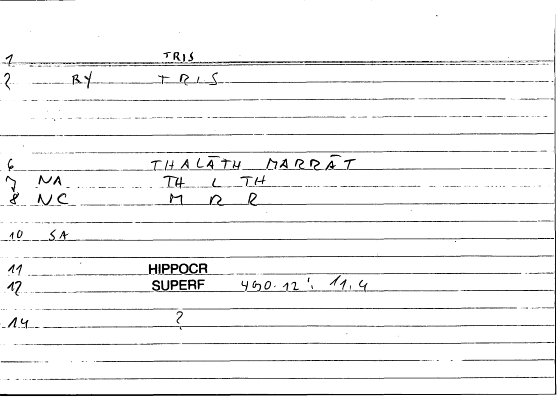 1 TRIS
2 RY TRIS
6 THALĀTH MARRĀT
7 NA TH L TH
8 NC M R R
10 SA
11 HIPPOCR
12 SUPERF 490.12; 11,4
14 ?